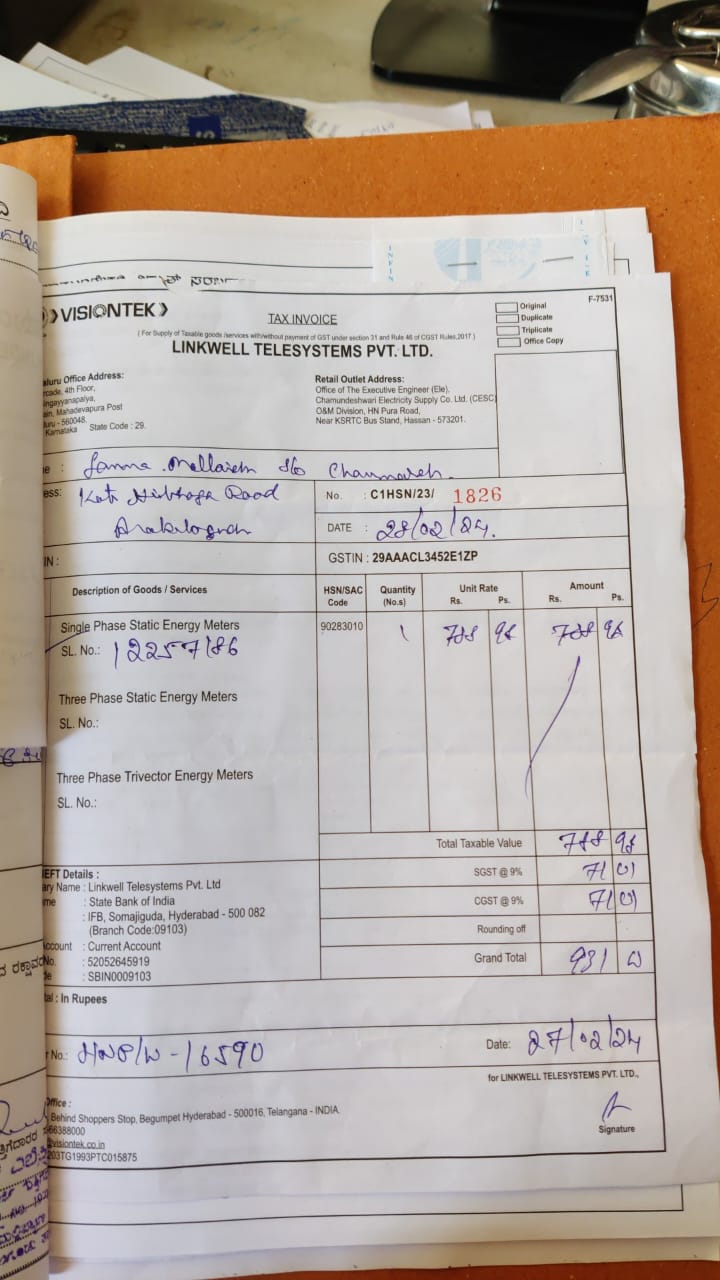 VISIONTEK
TAX INVOICE
F-7531
Original
Duplicate
Triplicate
Office Copy
( For Supply of Taxable goods /services with/without payment of GST under section 31 and Rule 46 of CGST Rules,2017 )
LINKWELL TELESYSTEMS PVT. LTD.
aluru Office Address:
rcade, 4th Floor,
ingayyanapalya,
ain, Mahadevapura Post
luru - 560048.
Karnataka State Code : 29.
Retail Outlet Address:
Office of The Executive Engineer (Ele),
Chamundeshwari Electricity Supply Co. Ltd. (CESC)
O&M Division, HN Pura Road,
Near KSRTC Bus Stand, Hassan - 573201.
e :
ess: Road
No. : C1HSN/23/ 1826
DATE : 28/02/24.
IN :
GSTIN : 29AAACL3452E1ZP
Description of Goods / Services
HSN/SAC Code
Quantity (No.s)
Unit Rate Rs. Ps.
Amount Rs. Ps.
Single Phase Static Energy Meters 90283010 1
SL. No.: 12257186
Three Phase Static Energy Meters
SL. No.:
Three Phase Trivector Energy Meters
SL. No.:
Total Taxable Value
SGST @ 9% 71 01
CGST @ 9% 71 01
Rounding off
Grand Total 931
EFT Details :
ary Name : Linkwell Telesystems Pvt. Ltd
me : State Bank of India
: IFB, Somajiguda, Hyderabad - 500 082
(Branch Code:09103)
ccount : Current Account
No. : 52052645919
de : SBIN0009103
tal : In Rupees
r No.: 16590
Date: 27/02/24
for LINKWELL TELESYSTEMS PVT. LTD.,
Signature
Office :
Behind Shoppers Stop, Begumpet Hyderabad - 500016, Telangana - INDIA
66388000
@visiontek.co.in
203TG1993PTC015875